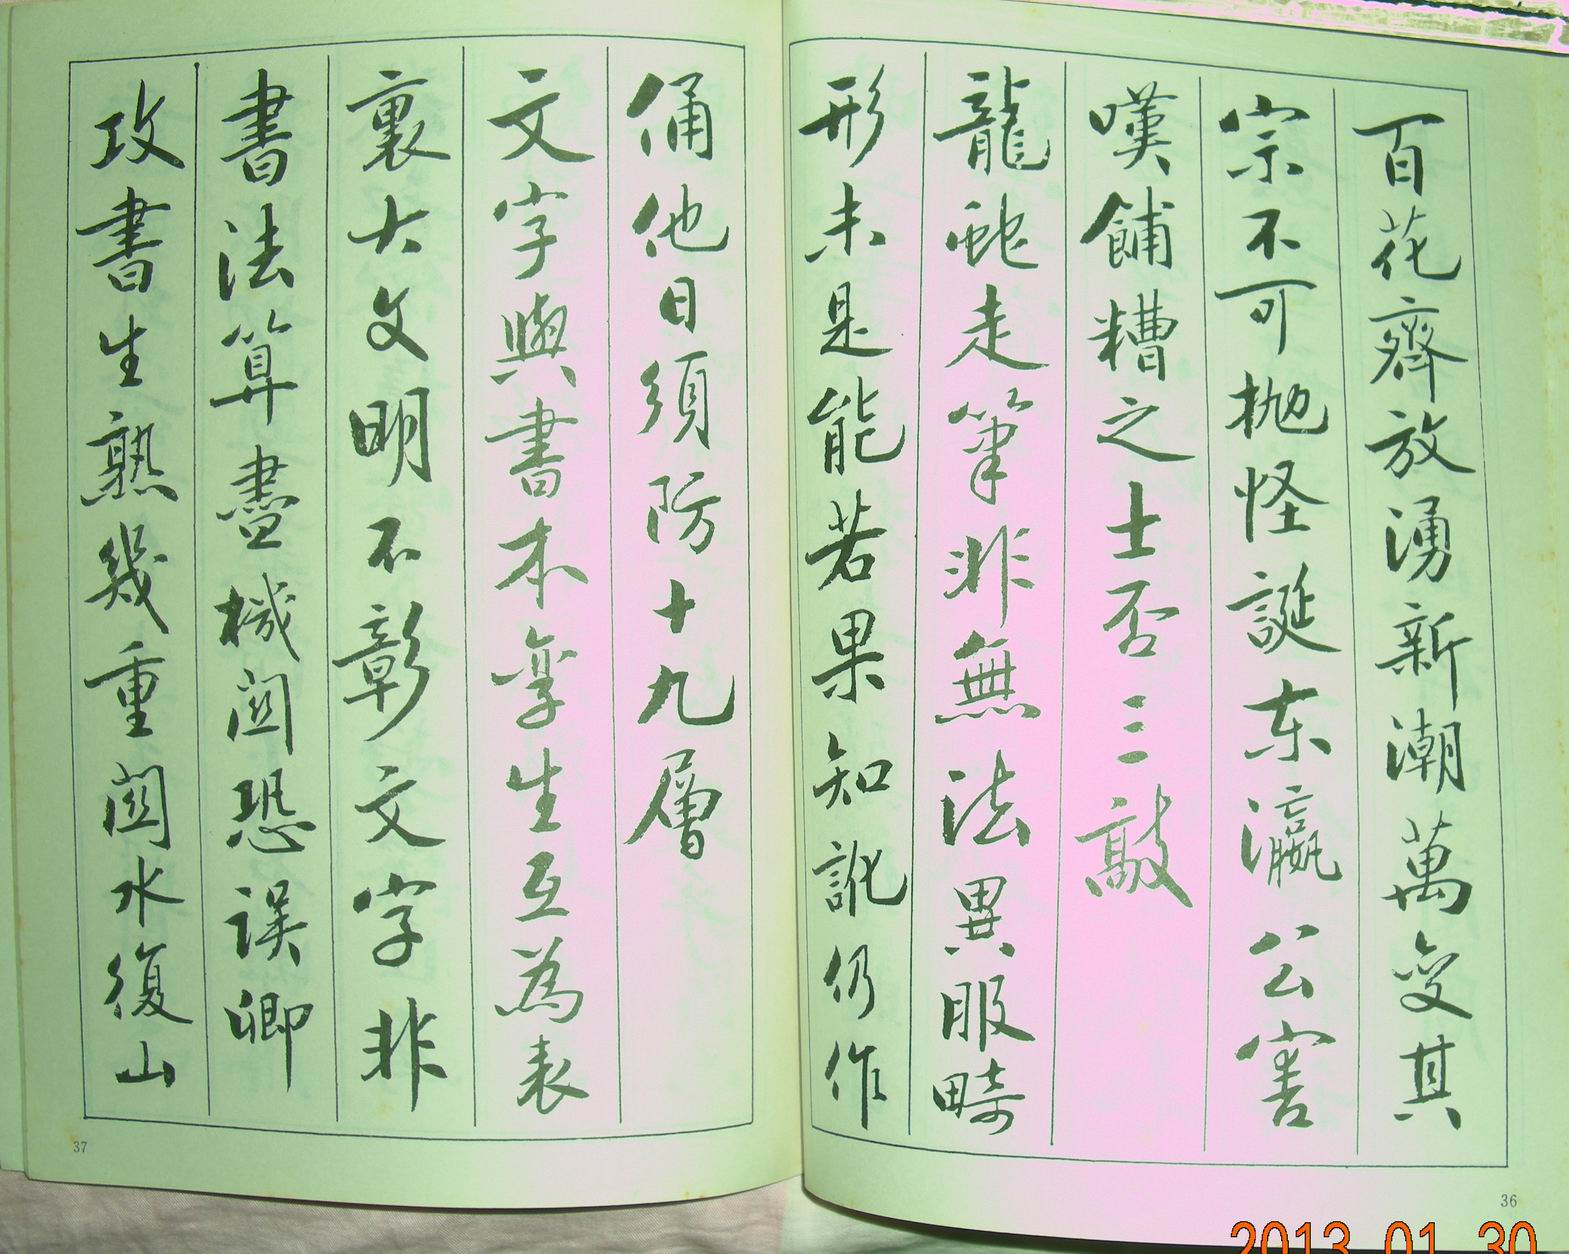 百花齊放湧新潮萬变其
宗不可抛怪誕东瀛公害
嘆餔糟之士否三三敲
龍蛇走筆非無法異服畸
形未是能若果知訛仍作
36
俑他日須防十九層
文字與書本孪生互為表
裏大文明不彰文字非
書法算盡機関恐误卿
攻書生熟幾重関水復山
37
2013 01 30